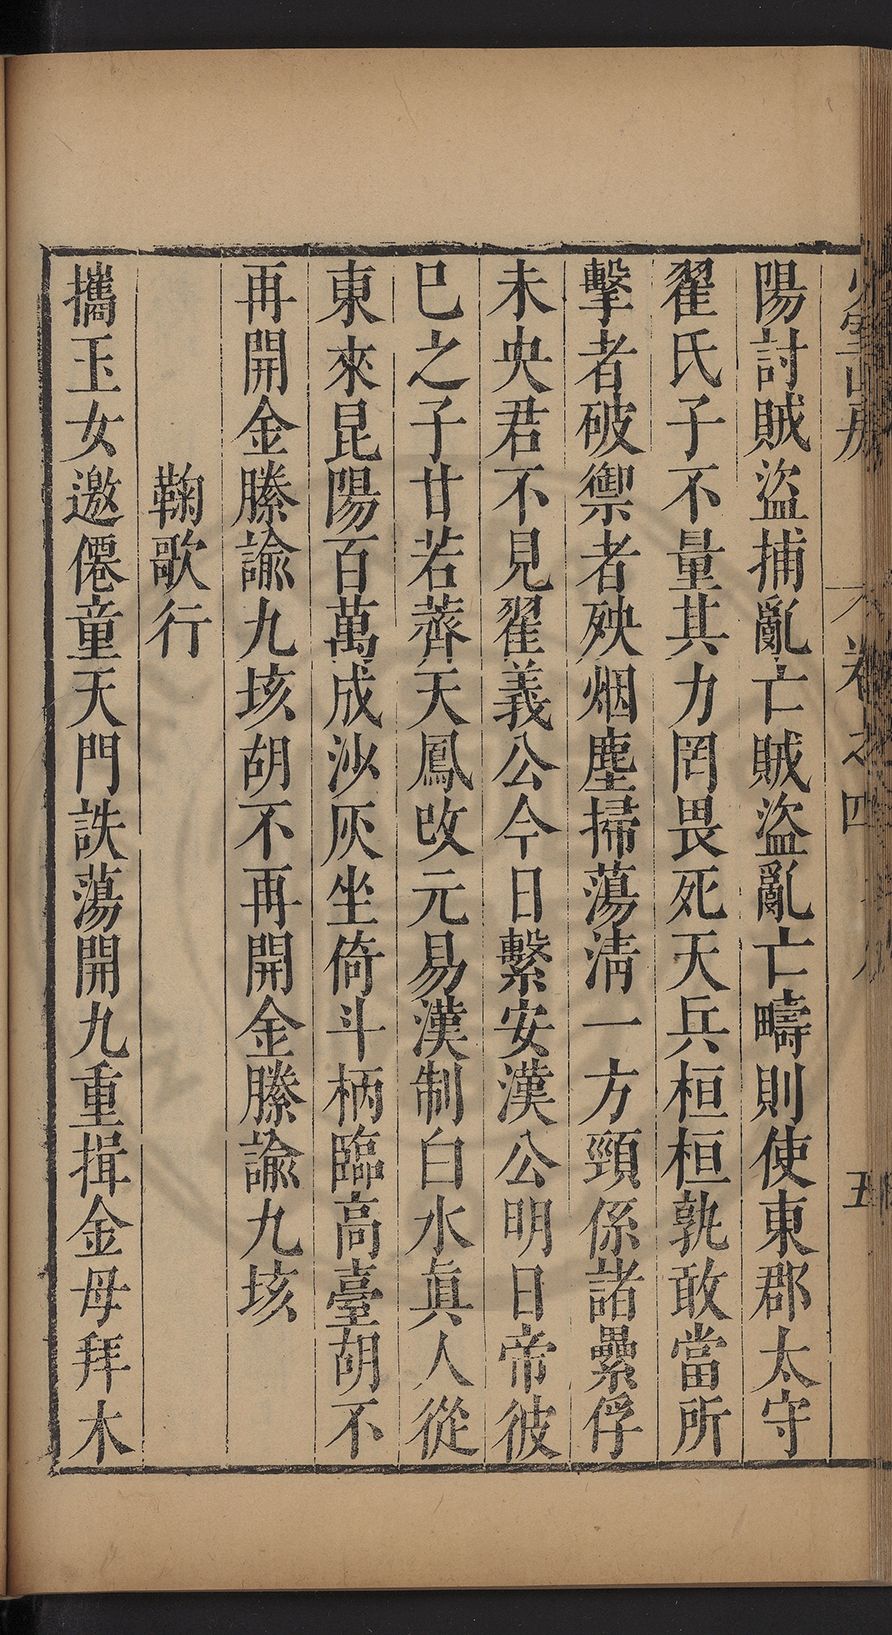 陽討賊盜捕亂亡賊盜亂亡疇則使東郡太守
翟氏子不量其力罔畏死天兵桓桓孰敢當所
擊者破禦者殃烟塵掃蕩清一方頸係諸纍俘
未央君不見翟義公今日繫安漢公明日帝彼
巳之子甘若薺天鳳改元易漢制白水眞人從
東來昆陽百萬成沙灰坐倚斗柄臨高臺胡不
再開金縢諭九垓胡不再開金縢諭九垓
鞠歌行
攜玉女邀僊童天門詄蕩開九重揖金母拜木
卷之四
五